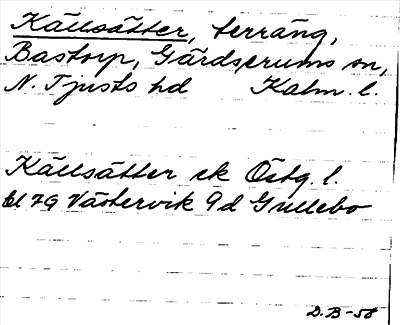 Källsätter, terräng,
Bastorp, Gärdserums sn,
N. Tjusts hd Kalm. l.
Källsätter ek Östg. l.
bl 7G Västervik 9d Gullebo
D.B-58